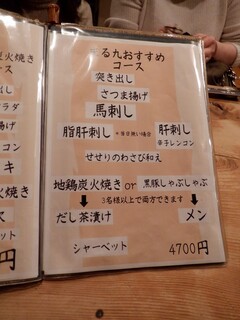 る九おすすめ
コース
突き出し
さつま揚げ
馬刺し
脂肝刺し ※当日無い場合 肝刺し
辛子レンコン
せせりのわさび和え
地鶏炭火焼き or 黒豚しゃぶしゃぶ
3名様以上で両方できます
だし茶漬け メン
シャーベット 4700円
炭火焼き
コース
出し
サラダ
揚げ
コン
キ
火焼き
円